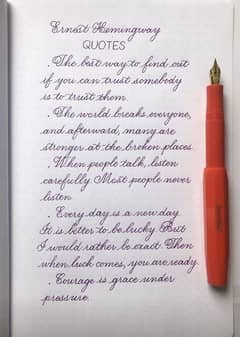 Ernest Hemingway
QUOTES
. The best way to find out
if you can trust somebody
is to trust them.
. The world breaks everyone,
and afterward, many are
stronger at the broken places.
. When people talk, listen
carefully. Most people never
listen
. Every day is a new day.
It is better to be lucky. But
I would rather be exact. Then
when luck comes, you are ready.
. Courage is grace under
pressure.